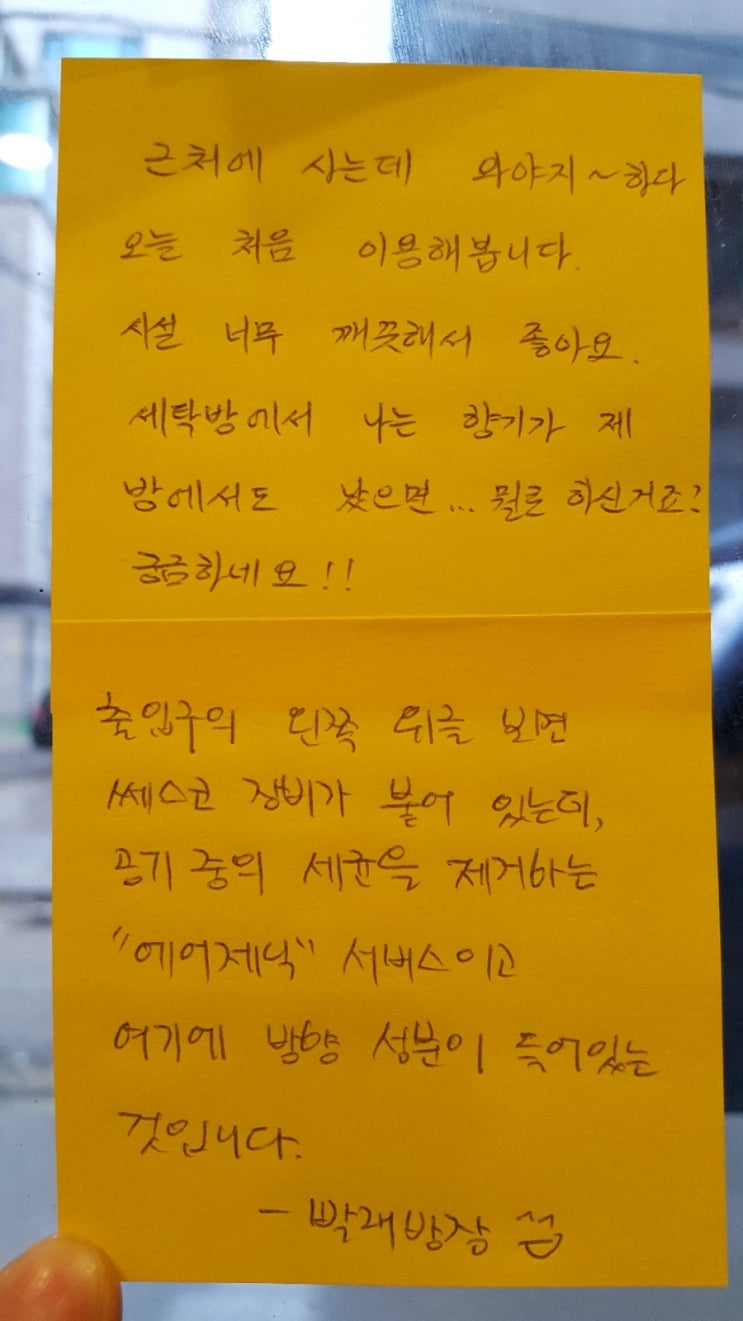 근처에 사는데 와야지~하다
오늘 처음 이용해봅니다.
시설 너무 깨끗해서 좋아요.
세탁방에서 나는 향기가 제
방에서도 났으면... 뭘로 하신거죠?
궁금하네요!!
출입구의 왼쪽 위를 보면
쎄스코 장비가 붙어 있는데,
공기 중의 세균을 제거하는
"에어제닉" 서비스이고
여기에 방향 성분이 들어있는
것입니다.
- 빨래방장